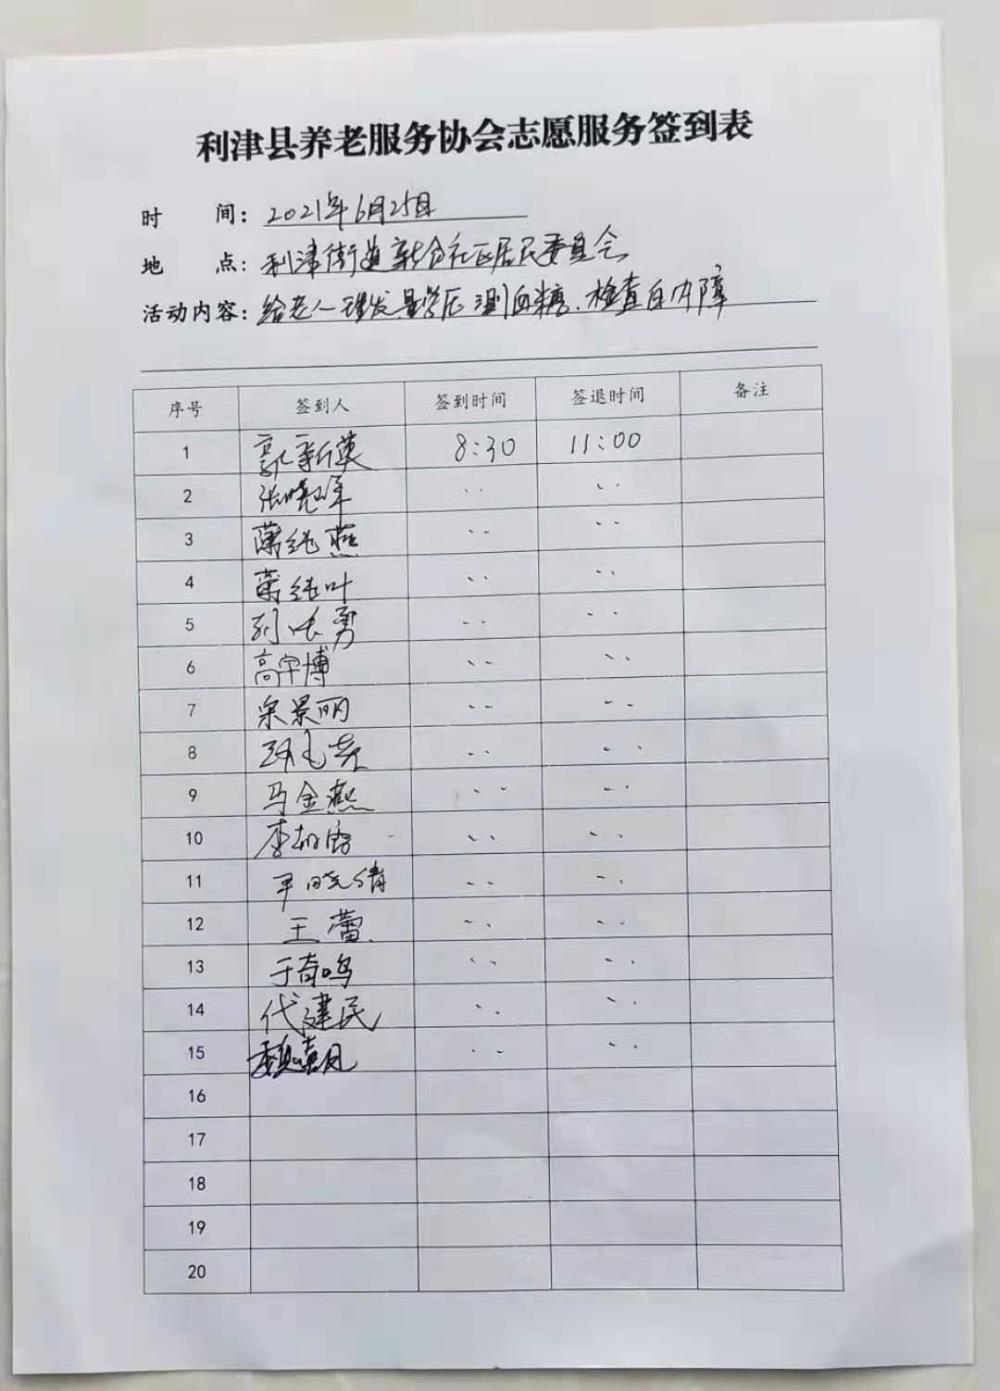 利津县养老服务协会志愿服务签到表
时 间: 2021年6月25日
地 点: 利津街道社区居民委员会
活动内容: 给老人理发量血压 测血糖.检查白内障
序号 签到人 签到时间 签退时间 备注
1 郭新英 8:30 11:00
2 张晓峰 、、 、、
3 燕 、、 、、
4 叶 、、 、、
5 刘长勇 、、 、、
6 高宇博 、、 、、
7 宋景丽 、、 、、
8 、、 、、
9 马金燕 、、 、、
10 李 、、 、、
11 晓倩 、、 、、
12 王蕾 、、 、、
13 于奇鸣 、、 、、
14 代建民 、、 、、
15 魏 、、 、、
16
17
18
19
20